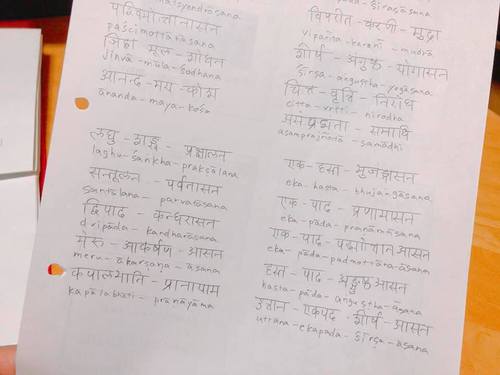 पश्चिमोत्तानासन
paścimottānāsana
जिह्वा मूल - शोधन
jihvā - mūla - śodhana
आनन्द - मय - कोश
ānanda - maya - kośa
लघु - शङ्ख - प्रक्षालन
laghu - śaṅkha - prakṣālana
सन्तुलन - पर्वतासन
santulana - parvatāsana
द्विपाद - कन्धरासन
dvipāda - kandharāsana
मेरु - आकर्षण - आसन
meru - ākarṣaṇa - āsana
कपालभाति - प्रानायाम
kapālabhāti - prānāyāma
विपरीत - करणी - मुद्रा
viparīta - karaṇī - mudrā
शीर्ष - अङ्गुष्ठ - योगासन
śīrṣa - aṅguṣṭha - yogāsana
चित्त - वृत्ति - निरोध
citta - vṛtti - nirodha
असंप्रज्ञता - समाधि
asamprajñatā - samādhi
एक - हस्त - भुजङ्गासन
eka - hasta - bhujaṅgāsana
एक - पाद - प्रणामासन
eka - pāda - praṇāmāsana
एक - पाद - पद्मोत्तान आसन
eka - pāda - padmottāna - āsana
हस्त - पाद - अङ्गुष्ठ आसन
hasta - pāda - aṅguṣṭha - āsana
उत्तान - एकपद - शीर्ष - आसन
uttāna - ekapada - śīrṣa - āsana